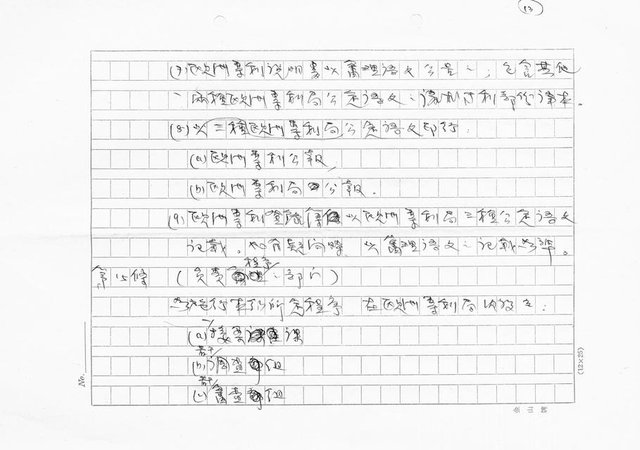 13
(7)歐洲專利說明書以審理語文公告、包含其他
兩種歐洲專利局公定語文、請求專利部份譯本。
(8)以三種歐洲專利局公定語文印行:
(a)歐洲專利公報,
(b)歐洲專利局公報.
(9)歐洲專利登記簿以歐洲專利局三種公定語文
記載。如有疑問時以審理語文之記載為準。
第15條 (負責程序之部門)
為執行本公約所定程序 在歐洲專利局內設立:
(a)受理課
(b)調查組
(c)審查組
No.
(12×25)